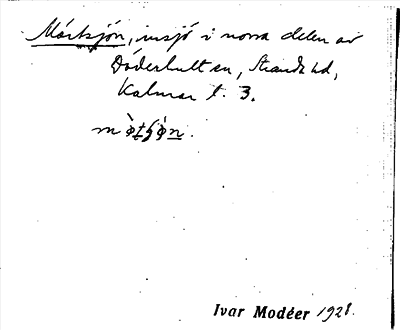 Mörtsjön, insjö i norra delen av
Döderhult sn, Stranda hd,
Kalmar l. 3.
Ivar Modéer 1928.